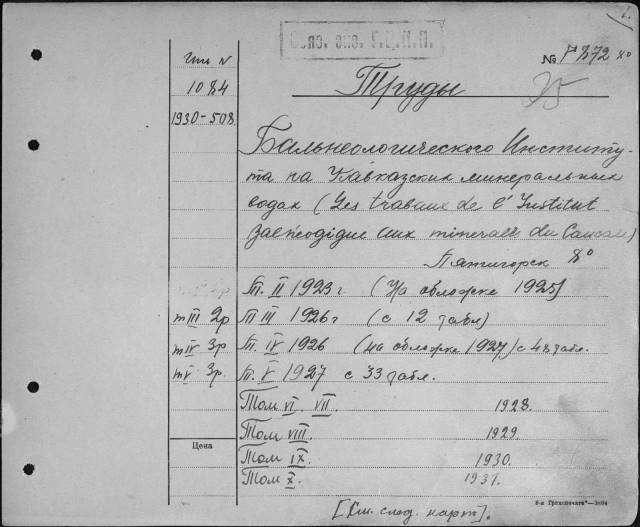 Обяз. экз. Г.Ц.К.П.
Инв N
1084
1930-508
№ P 872 8°
25
Труды
Бальнеологического Институ-
та на Кавказских минеральных
водах (Les travaux de l'Institut
aux minerales du Caucase)
Пятигорск 8°
Т. II 1923 г. (На обложке 1925)
т III 2р Т III 1926 г (с 12 табл)
т IV 3р Т. IV 1926 (на обложке 1927) с 48 табл.
т V 3р. Т. V 1927 с 33 табл.
Том VI. VII. 1928.
Том VIII. 1929.
Цена
Том IX. 1930.
Том X. 1931.
[См. след. карт].